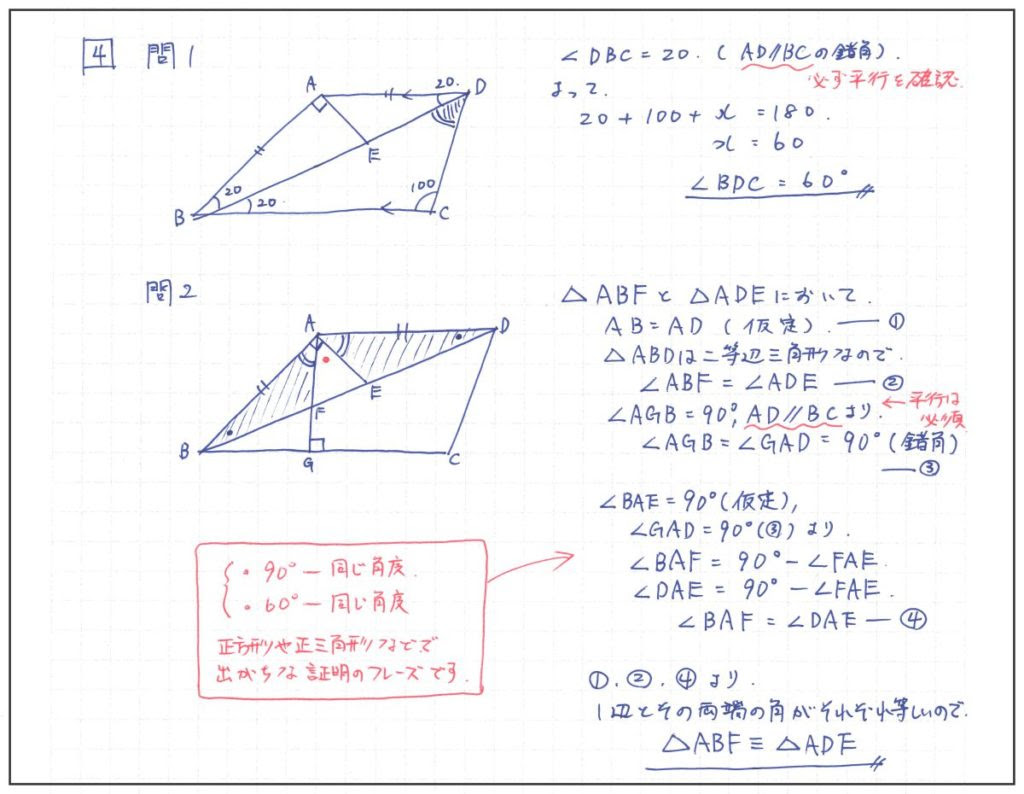 4 問1
A
20.
D
E
B
20
20.
100
C
∠DBC = 20. (AD∥BCの錯角).
必ず平行を確認.
よって.
20 + 100 + x = 180.
x = 60
∠BDC = 60°
問2
A
D
E
F
B
G
C
△ABFと△ADEにおいて.
AB = AD (仮定). ― ①
△ABDは二等辺三角形なので.
∠ABF = ∠ADE ― ②
∠AGB = 90°, AD∥BCより.
← 平行は
必須
∠AGB = ∠GAD = 90° (錯角)
― ③
∠BAE = 90° (仮定),
∠GAD = 90° (③) より.
∠BAF = 90° - ∠FAE.
∠DAE = 90° - ∠FAE.
∠BAF = ∠DAE ― ④
・90° ― 同じ角度.
・60° ― 同じ角度
正方形や正三角形などで
出がちな証明のフレーズです.
①. ②. ④より.
1辺とその両端の角がそれぞれ等しいので.
△ABF ≡ △ADE